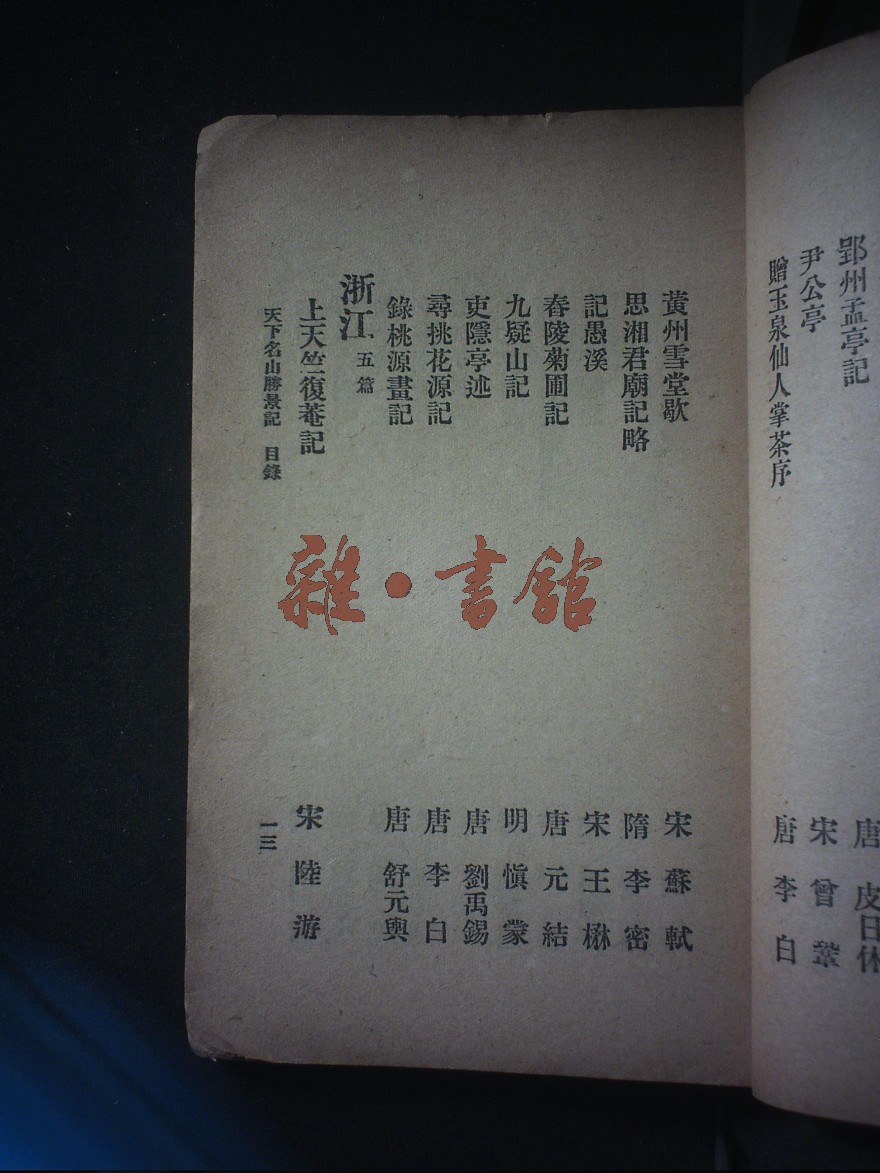 郢州孟亭記 唐 皮日休
尹公亭 宋 曾鞏
贈玉泉仙人掌茶序 唐 李白
黃州雪堂歌 宋 蘇軾
思湘君廟記略 隋 李密
記愚溪 宋 王楙
舂陵菊圃記 唐 元結
九疑山記 明 慎蒙
吏隱亭述 唐 劉禹錫
尋挑花源記 唐 李白
錄桃源畫記 唐 舒元輿
浙江 五篇
上天竺復菴記 宋 陸游
天下名山勝景記 目錄 一三
雜·書館